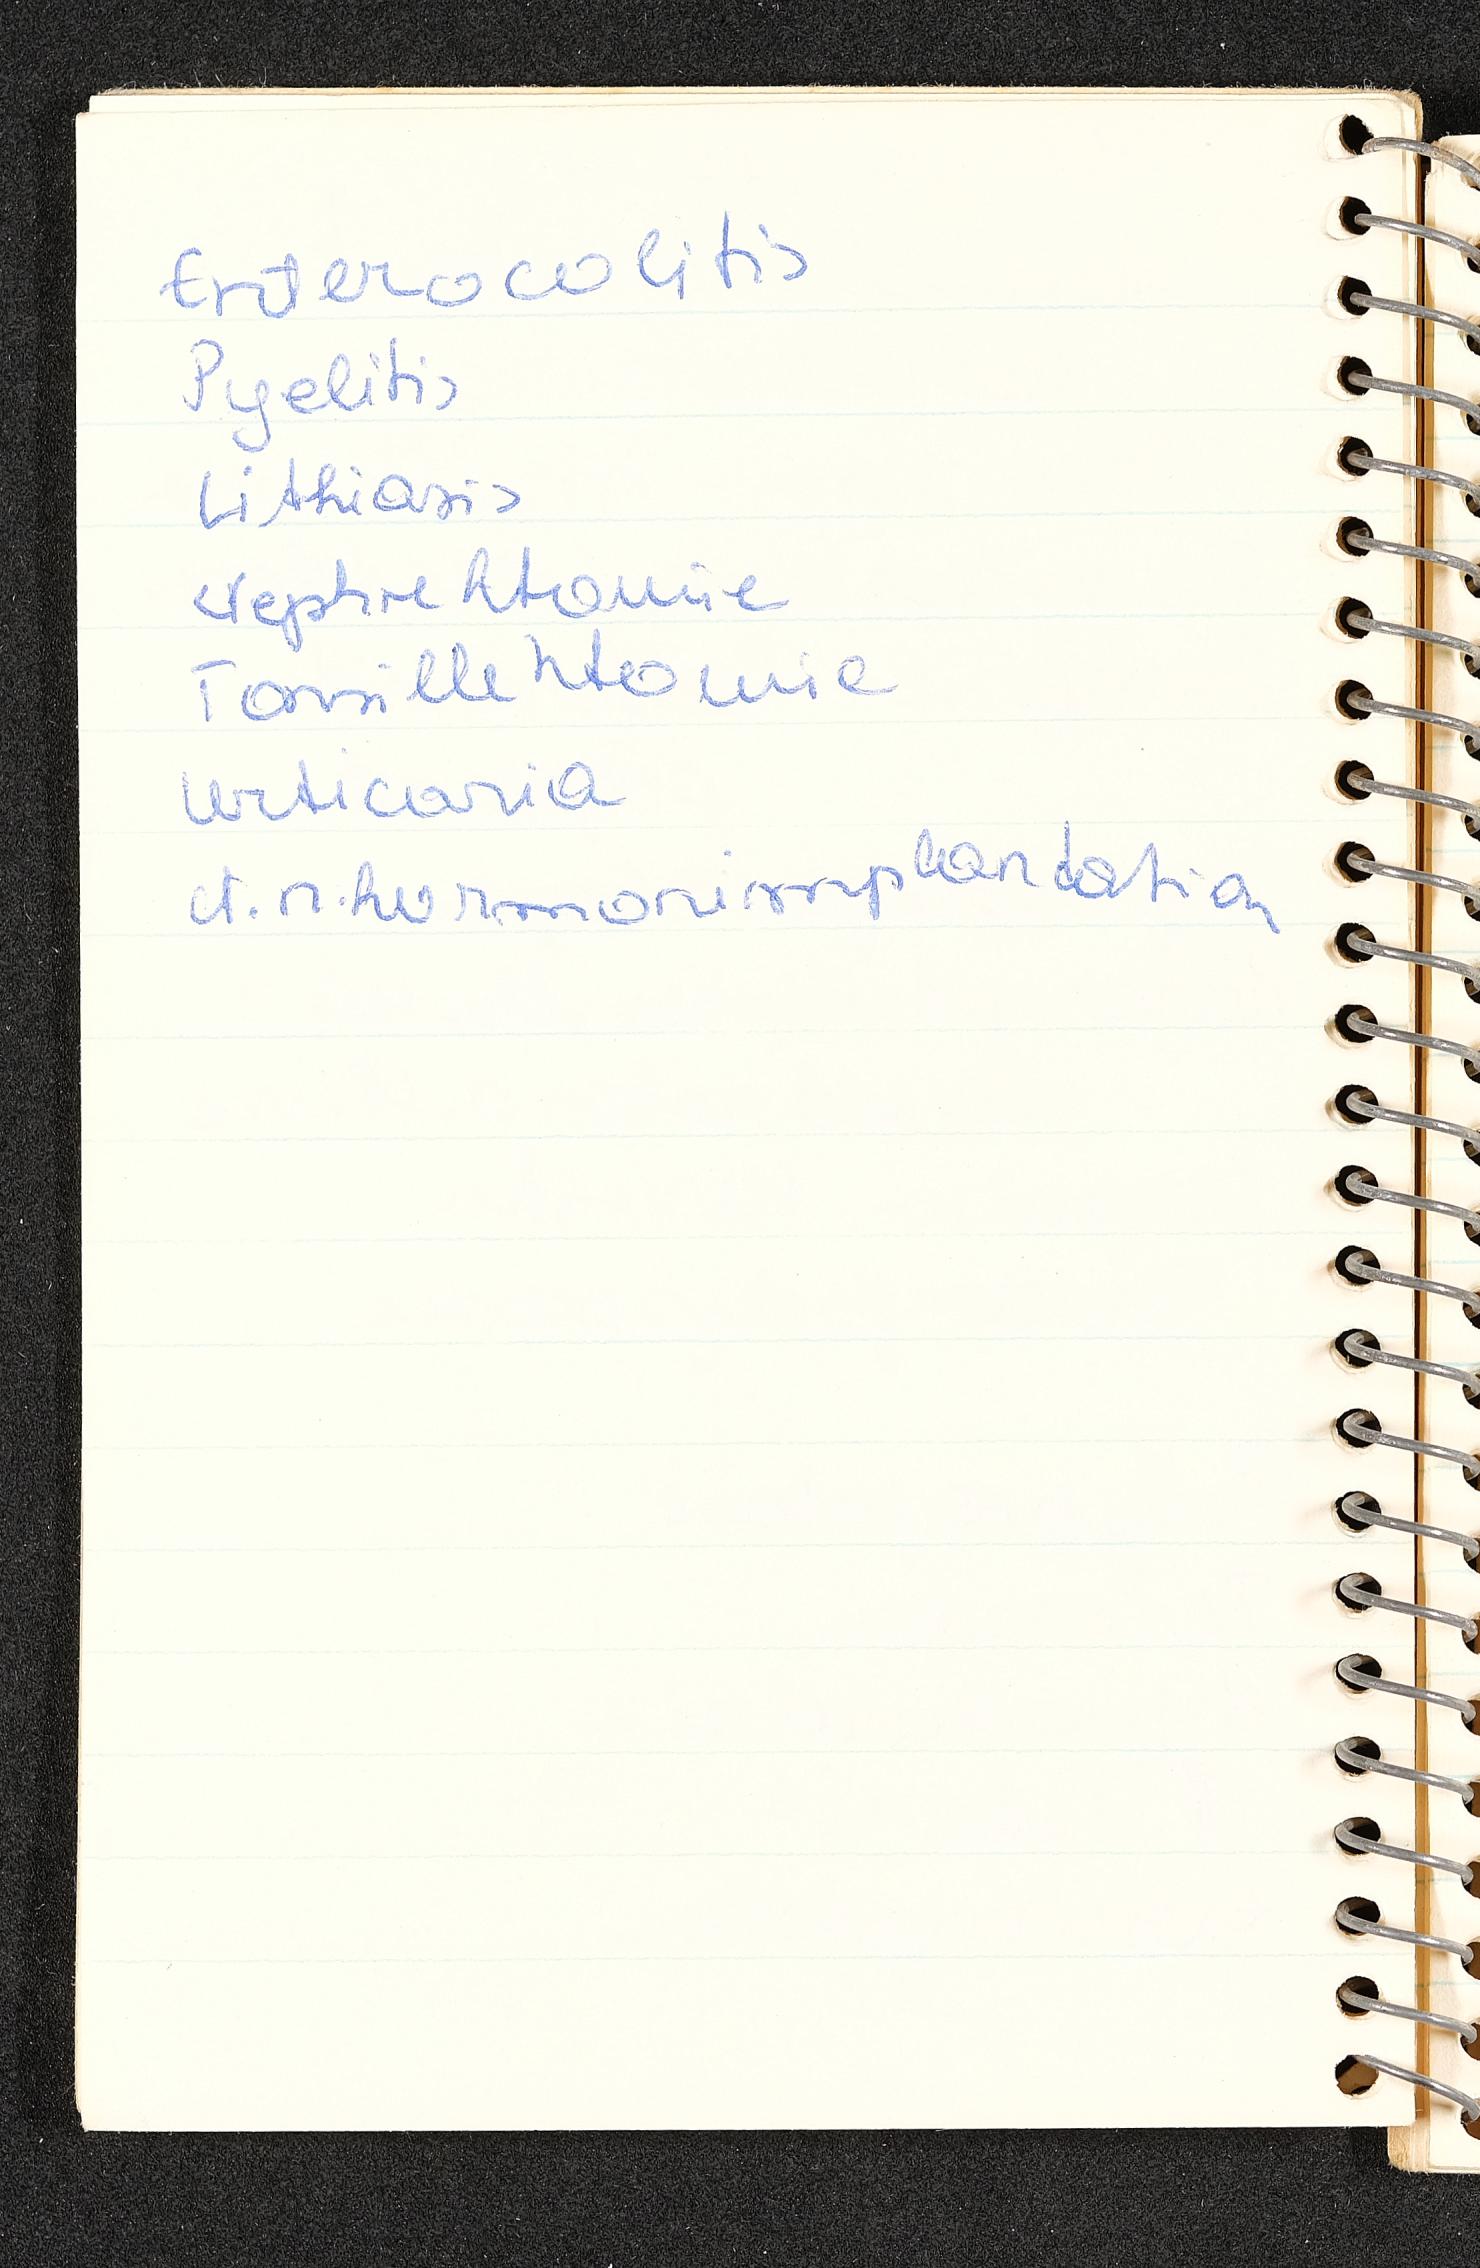 Enterocolitis
Pyelitis
Lithiasis
Nephrektomie
Tonsillektomie
Urticaria
N.n.hormonimplantation